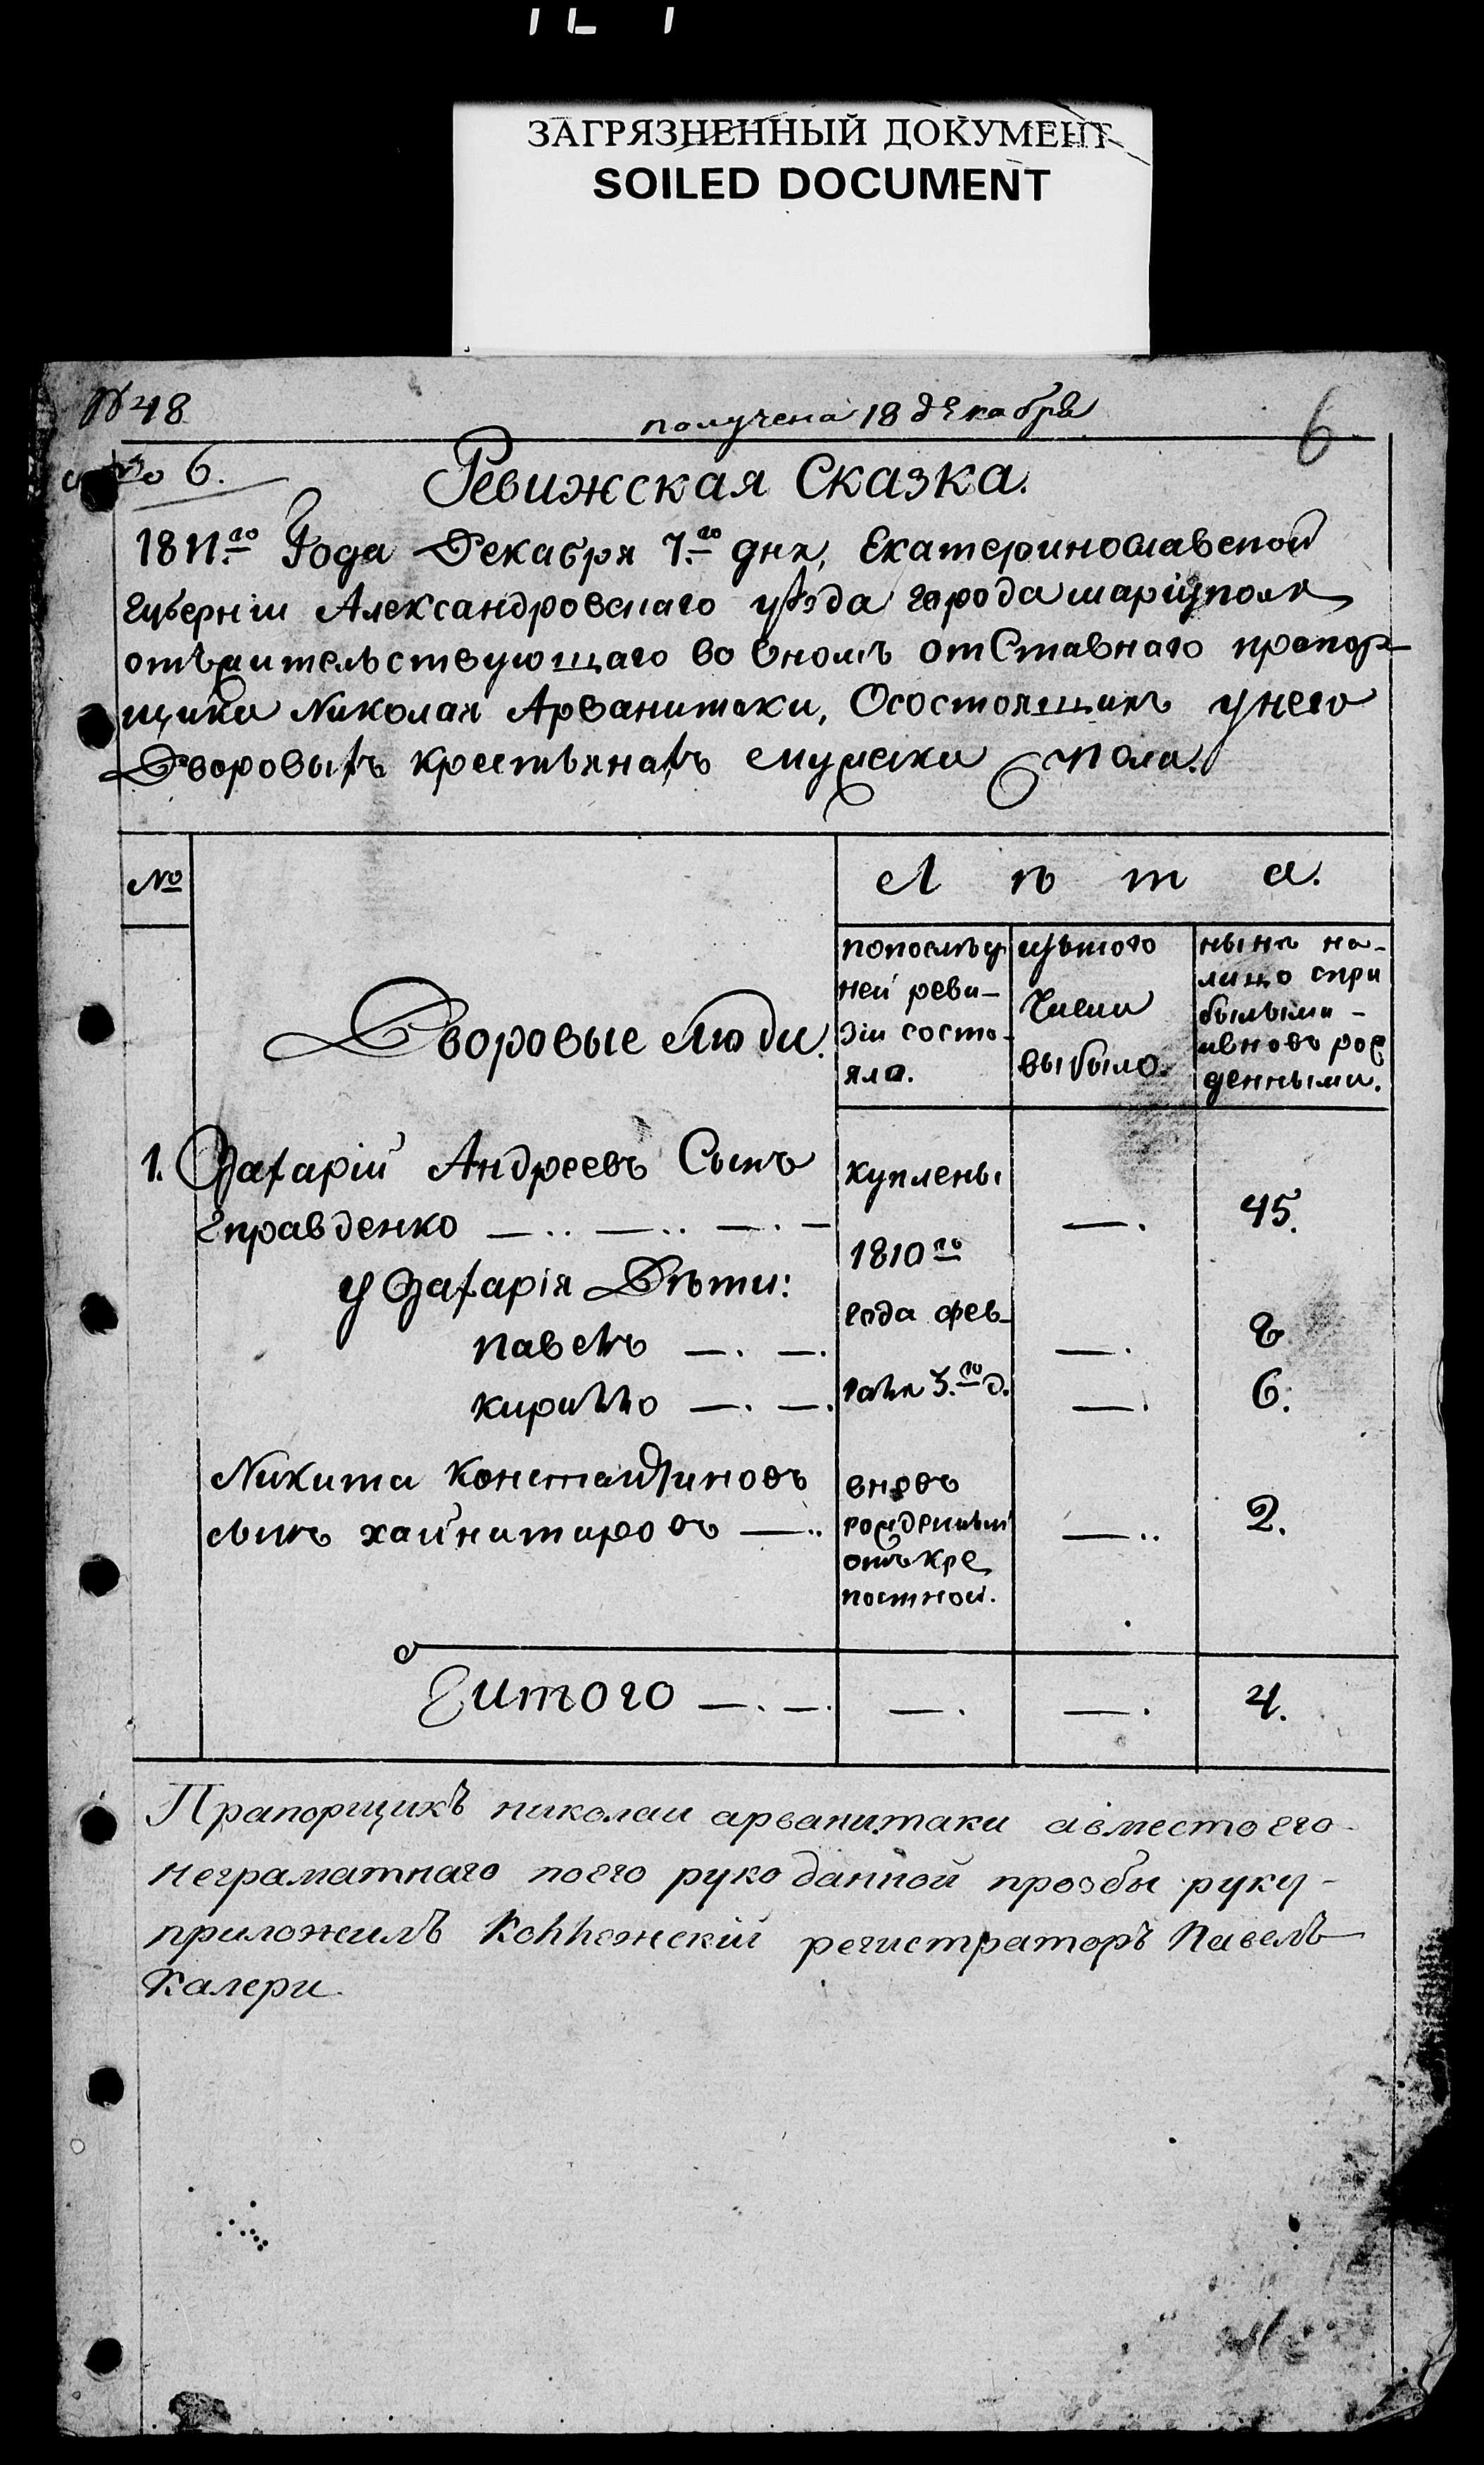 ЗАГРЯЗНЕННЫЙ ДОКУМЕНТ
SOILED DOCUMENT
№ 48
получена 18 декабря
6
6.
Ревижская Сказка.
1811.го Года Декабря 7.го дня, Екатеринославской
губерніи Александровскаго уѣзда города мариуполя
отъжительствующаго во ономъ отСтавнаго пропор-
щика Николая Арванитаки, Осостоящихъ унего
Дворовыхъ крестьянахъ мужска пола.
№
Лѣта.
Дворовые Люди.
попослѣд
ней реви-
зіи состо-
яло.
изътого
Числа
выбыло.
нынѣ на-
лицо спри
былыми -
ивновь рож
денными.
1. Захарій Андреевъ Сынъ
правденко — .. — .. — . —
куплены
— .
45.
1810го
У Захарія Дѣти:
года фев-
павелъ — . — .
— .
8
раля 3.го д.
кирилло — . — .
— .
6.
Никита Константиновъ
вновь
сынъ — ..
рожденный
— ..
2.
отъ кре
постной.
итого — . — .
— .
— .
4.
Прапорщикъ николаи арванитаки авместо его
неграматнаго поего рукоданной прозбы руку-
приложилъ регистраторъ Павелъ
Калери.